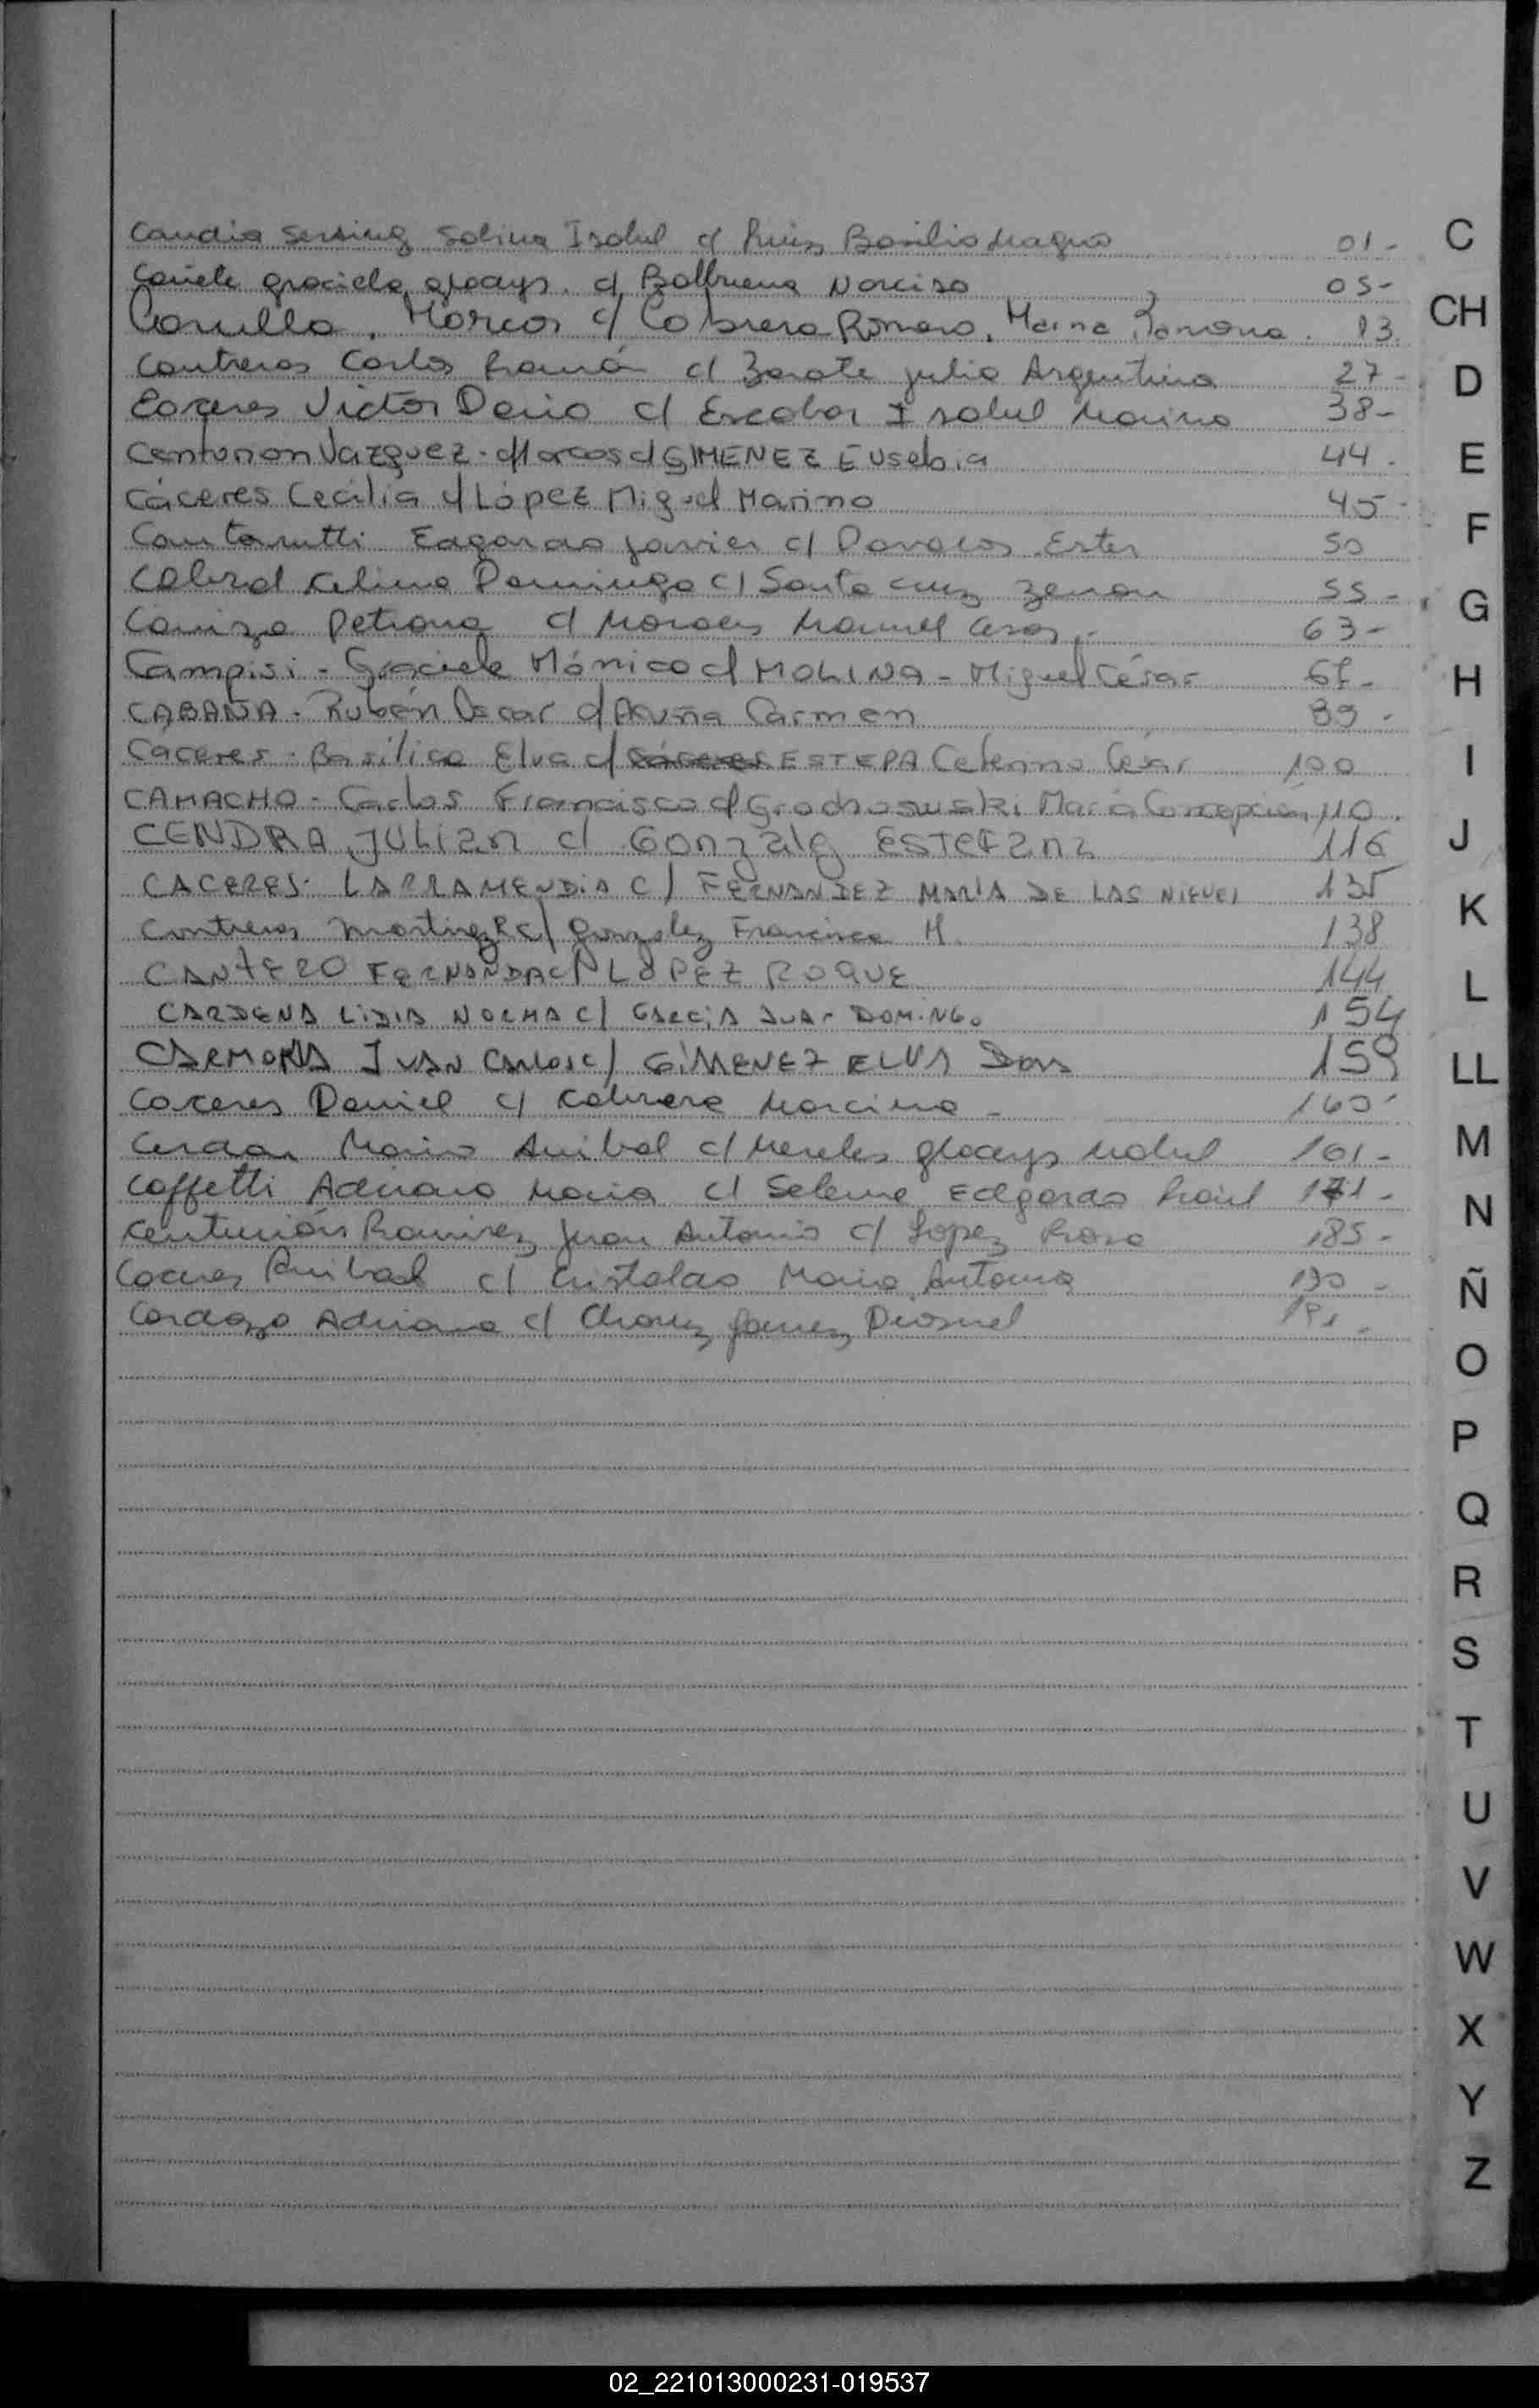 Candia Sabina Isabel c/ Ruiz Basilio Magno 01-
Cañete Graciela Gladys. c/ Balbuena Narciso 05-
Marcos c/ Cabrera Romero, Ramona. 13.
Contreras Carlos Ramón c/ Zarate Julia Argentina 27-
Caceres Victor Dario c/ Escobar Isabel Marina 38-
Centurion Vazquez. Marcos c/ GIMENEZ Eusebia 44.
Cáceres Cecilia c/ López Miguel Marino 45-
Cantarutti Edgardo Javier c/ Davalos Ester 50
Cabral Celina Dominga c/ Santa Cruz Zenon 55-
Petrona c/ Morales Manuel Cesar.- 63-
Campisi - Graciela Mónica c/ MOLINA - Miguel César
CABAÑA - Rubén Oscar c/ Acuña Carmen 89-
Cáceres - Basilica Elva c/ ESTEPA Ceferino César 100
CAMACHO - Carlos Francisco c/ Grochosuski María Concepción 110.
CENDRA JULIAN c/ Gonzalez ESTEFANA 116
CACERES. LARRAMENDIA C/ FERNANDEZ MARIA DE LAS NIEVES 135
Contreras Martinez R c/ Gonzalez Francisca M. 138
CANTERO FERNANDA C/ LOPEZ ROQUE 144
CARDENA LIDIA NORMA C/ GARCIA JUAN DOMINGO 154
CARMONA JUAN Carlos c/ GIMENEZ ELVA Dora 159
Caceres Daniel c/ Cabrera Marcina - 160-
Cerdan Mario Anibal c/ Mereles Gladys Mabel 161-
Caffetti Adriana Maria c/ Seleme Edgardo Raúl 171-
Centurión Ramirez Juan Antonio c/ Lopez Rosa 185-
Caceres Anibal c/ Cristaldo Maria Antonia 190-
Cardozo Adriana c/ Diosnel 191-
C
CH
D
E
F
G
H
I
J
K
L
LL
M
N
Ñ
O
P
Q
R
S
T
U
V
W
X
Y
Z
02_221013000231-019537